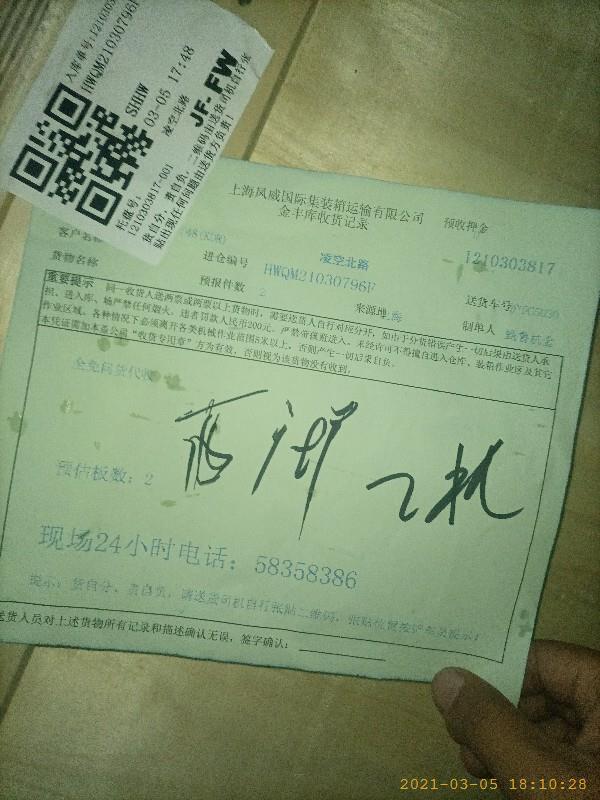 入库单号:1210303
HWQM21030796F
SHHW
03-05 17:48
凌空北路
JF- FW
托盘号:
1210303817-001
货自分、责自负、二维码由送货司机自行张
贴出现任何问题由送货方负责!
上海凤威国际集装箱运输有限公司
金丰库收货记录
预收押金
客户名称
进仓编号
凌空北路
HWQM21030796F
1210303817
货物名称
预报件数 2
来源地:
送货车号
制单人
重要提示
同一收货人送两票或两票以上货物时,需要送货人自行对应分开,如由于分货错误产生一切后果由送货人承
担。进入库、场严禁任何烟火,违者罚款人民币200元。严禁带孩童进入,未经许可不得擅自进入仓库、装箱作业区及其它
作业区域。各种情况下必须离开各类机械作业范围5米以上,否则产生一切后果自负。
本凭证需加本盖公司“收货专用章”方为有效,否则视为该货物没有收到。
预估板数:2
现场24小时电话:58358386
提示:货自分、责自负,请送货司机自行张贴二维码,
送货人员对上述货物所有记录和描述确认无误,签字确认:
2021-03-05 18:10:28